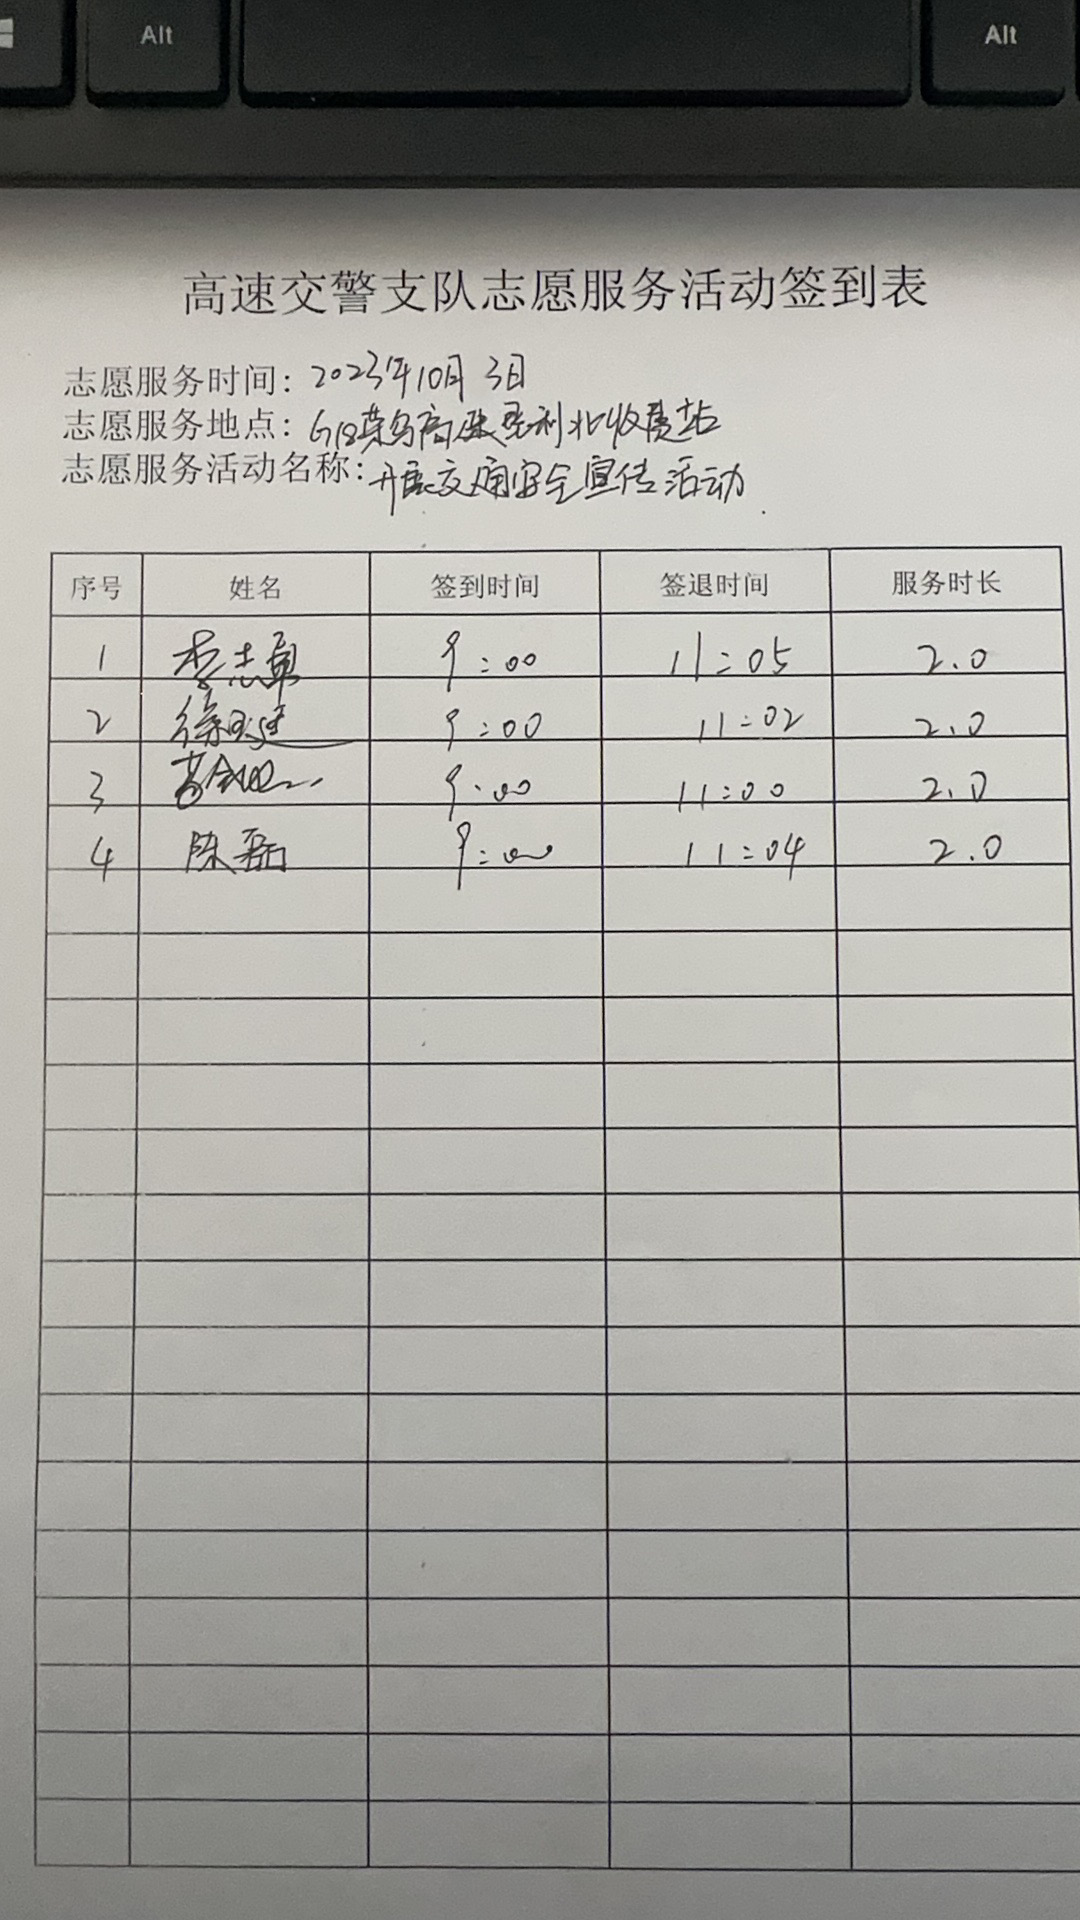 Alt Alt
高速交警支队志愿服务活动签到表
志愿服务时间：2023年10月3日
志愿服务地点：G18荣乌高速垦利北收费站
志愿服务活动名称：开展交通安全宣传活动
序号 姓名 签到时间 签退时间 服务时长
1 李志勇 9:00 11:05 2.0
2 徐 9:00 11:02 2.0
3 9:00 11:00 2.0
4 陈磊 9:00 11:04 2.0